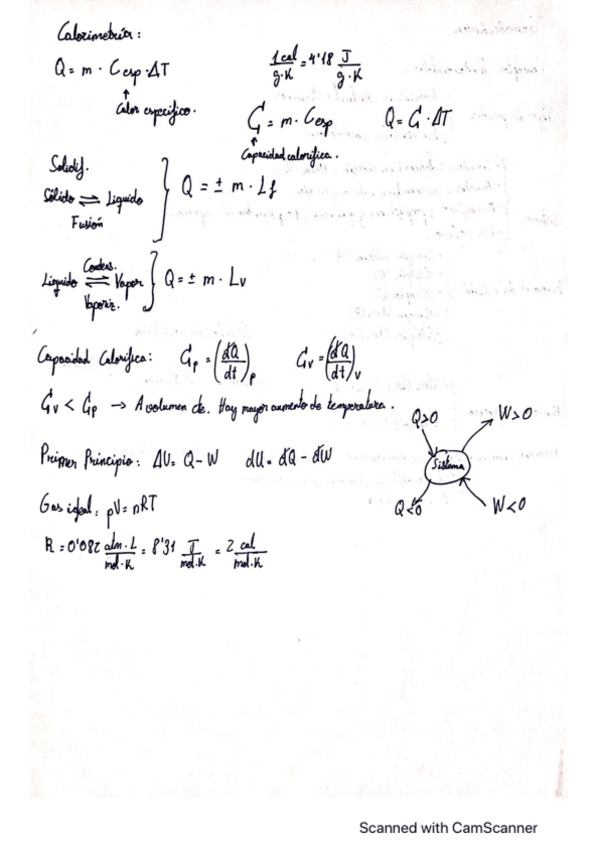 Calorimetría:
Q = m · Cesp · ΔT
↑
Calor específico.
1 cal/g·K = 4'18 J/g·K
C = m · Cesp
↑
Capacidad calorífica.
Q = C · ΔT
Solidif.
Sólido ⇌ Líquido
Fusión
Q = ± m · Lf
Condens.
Líquido ⇌ Vapor
Vaporiz.
Q = ± m · Lv
Capacidad Calorífica: Cp = (đQ/dt)p Cv = (đQ/dt)v
Cv < Cp → A volumen cte. Hay mayor aumento de temperatura.
Primer Principio: ΔU = Q - W dU = đQ - đW
Q>0 W>0
Sistema
Q<0 W<0
Gas ideal: pV = nRT
R = 0'082 atm·L/mol·K = 8'31 J/mol·K = 2 cal/mol·K
Scanned with CamScanner